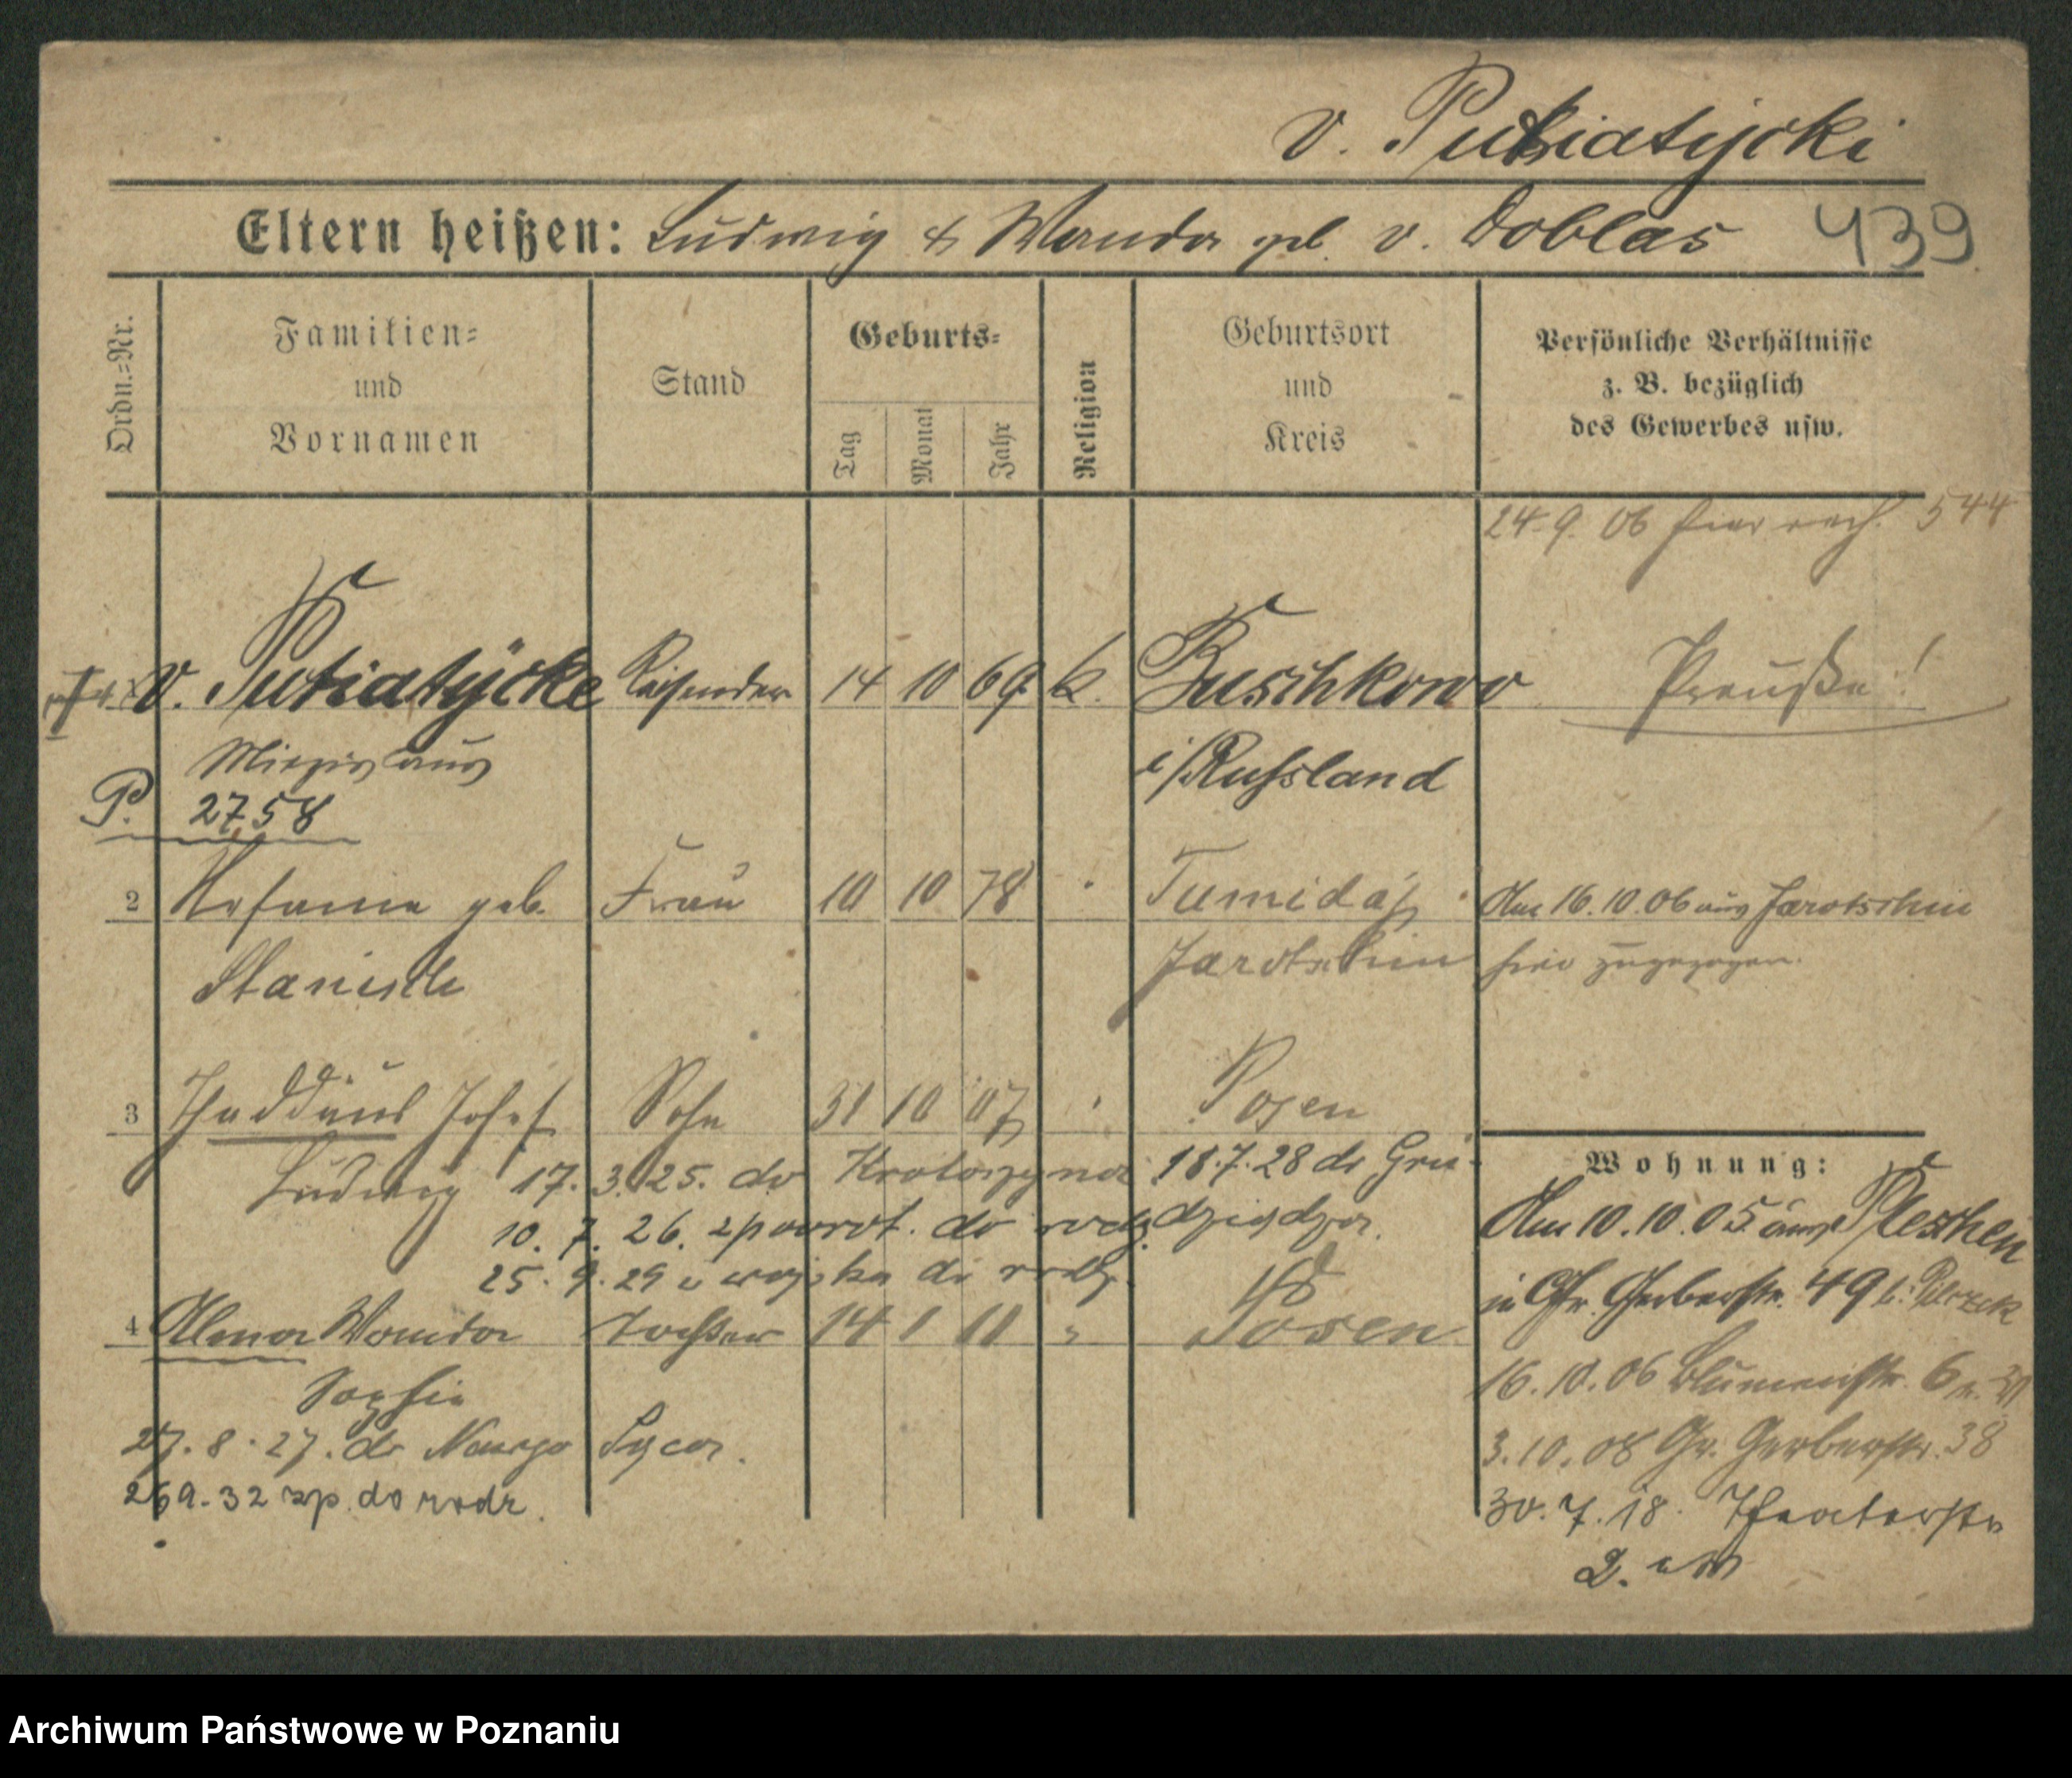 v. Putiatycki
Eltern heißen: Ludwig & Wanda geb. v. Doblas 439
Ordn.-Nr.
Familien-
und
Vornamen
Stand
Geburts-
Tag
Monat
Jahr
Religion
Geburtsort
und
Kreis
Persönliche Verhältnisse
z. B. bezüglich
des Gewerbes usw.
24.9.06 544
v. Putiatycke Reisender 14 10 69 k. Zuschkowo Preuße!
i/Russland
P. 2758
2 geb. Frau 10 10 78 Tumidaj Am 16.10.06 aus Jarotschin
Jarotschin hier zugezogen.
3 Thaddäus Josef Sohn 31 10 07 " Posen
Ludwig 17.3.25. do Krotoszyna 18.7.28 do Gru-
10.7.26. z powrot. do rodz. dziądza.
25.9.29 z wojska do rodz.
4 Alma Wanda Tochter 14 1 11 " Posen
Sophie
27.8.27. do
26 9.32 zp. do rodz.
Wohnung:
Am 10.10.05 aus Pleschen
in Gr. Gerberstr. 49 b.
16.10.06 Blumenstr. 6
3.10.08 Gr. Gerberstr. 38
30.7.18. Theaterstr
2.
Archiwum Państwowe w Poznaniu